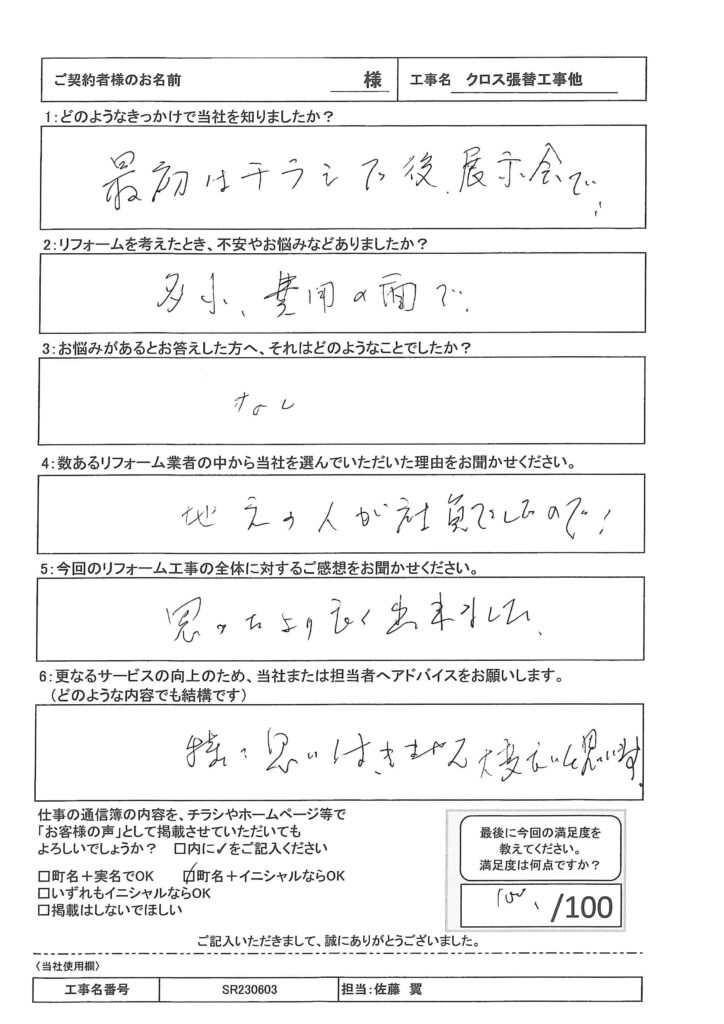 ご契約者様のお名前 様 工事名 クロス張替工事他
1:どのようなきっかけで当社を知りましたか?
最初はチラシで後、展示会で、
2:リフォームを考えたとき、不安やお悩みなどありましたか?
多少、費用の面で、
3:お悩みがあるとお答えした方へ、それはどのようなことでしたか?
なし
4:数あるリフォーム業者の中から当社を選んでいただいた理由をお聞かせください。
地元の人が社員でしたので、
5:今回のリフォーム工事の全体に対するご感想をお聞かせください。
思ったより良く出来ました、
6:更なるサービスの向上のため、当社または担当者へアドバイスをお願いします。
(どのような内容でも結構です)
特に思い きません大変良いと思います。
仕事の通信簿の内容を、チラシやホームページ等で
「お客様の声」として掲載させていただいても
よろしいでしょうか? □内に✓をご記入ください
□町名+実名でOK ☑町名+イニシャルならOK
□いずれもイニシャルならOK
□掲載はしないでほしい
最後に今回の満足度を
教えてください。
満足度は何点ですか?
100、/100
ご記入いただきまして、誠にありがとうございました。
〈当社使用欄〉
工事名番号 SR230603 担当:佐藤 翼